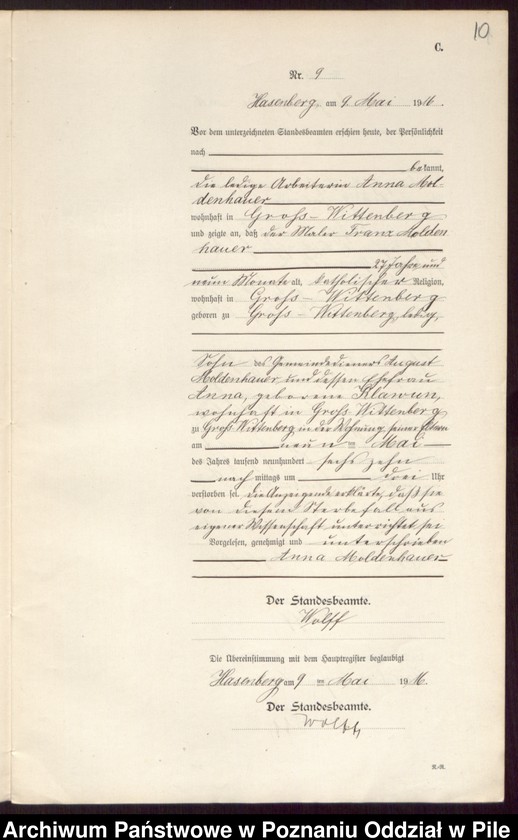 10
C.
Nr. 9
Hasenberg, am 9. Mai 1916.
Vor dem unterzeichneten Standesbeamten erschien heute, der Persönlichkeit
nach
bekannt,
die ledige Arbeiterin Anna Mol-
denhauer
wohnhaft in Groß-Wittenberg
und zeigte an, daß der Maler Franz Molden
hauer
27 Jahre und
neun Monate alt, katholischer Religion,
wohnhaft in Groß-Wittenberg
geboren zu Groß-Wittenberg, ledig,
Sohn des Gemeindedieners August
Moldenhauer und dessen Ehefrau
Anna, geborene Klawun,
wohnhaft in Groß Wittenberg
zu Groß Wittenberg, in der Wohnung seiner Eltern
am neunten Mai
des Jahres tausend neunhundert sechszehn
nachmittags um drei Uhr
verstorben sei. Die Anzeigende erklärte, daß sie
von diesem Sterbefall aus
eigener Wissenschaft unterrichtet sei
Vorgelesen, genehmigt und unterschrieben
Anna Moldenhauer
Der Standesbeamte.
Wolff
Die Übereinstimmung mit dem Hauptregister beglaubigt
Hasenberg am 9 ten Mai 1916.
Der Standesbeamte.
Wolff
R.-R.
Archiwum Państwowe w Poznaniu Oddział w Pile